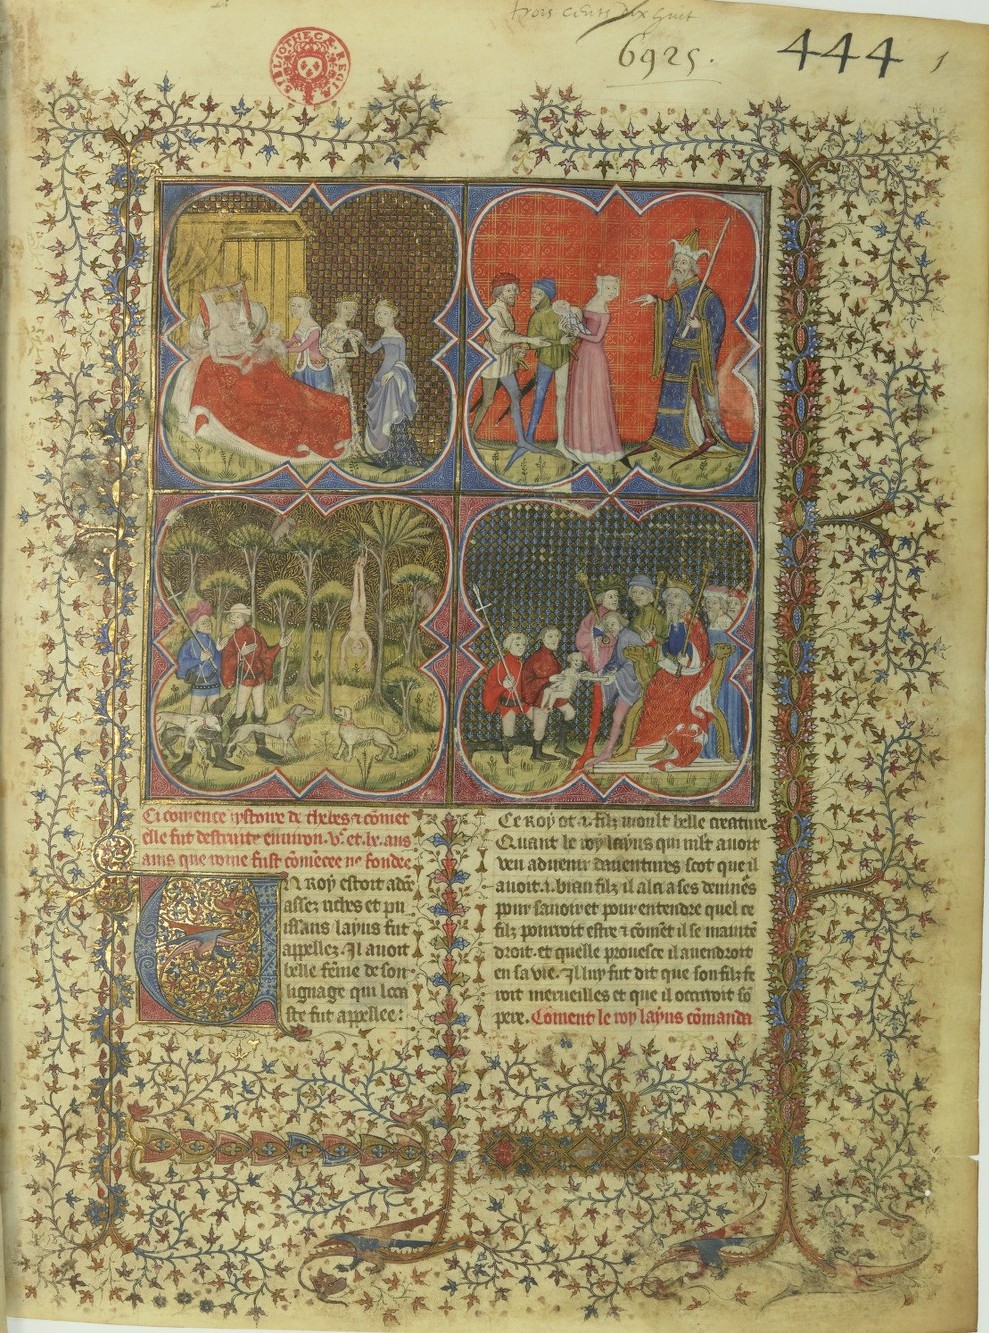 trois cents dix huit
6925.
444
1
BIBLIOTHECÆ REGIÆ
Ci comence lystoire de thebes ⁊ cōmēt
elle fut destruite environ .vᶜ. et .lx. ans
ains que rome fust cōmēcee ne fondee
UN Roy estoit adōc
assez riches et pu
issans layus fut
appellez. Il avoit
belle fēme de son
lignage qui Ioca
ste fut appellee:
Ce Roy ot .i. filz moult belle creature.
Quant le roy layus qui mlt avoit
veu advenir daventures scot que il
avoit .i. biau filz il ala a ses devines
pour savoir et pour entendre quel ce
filz pourroit estre ⁊ cōmēt il se mainte
droit. et quelle prouesce il avendroit
en sa vie. Il luy fut dit que son filz fe
roit merveilles et que il occirroit sō
pere. Cōment le roy layus cōmanda